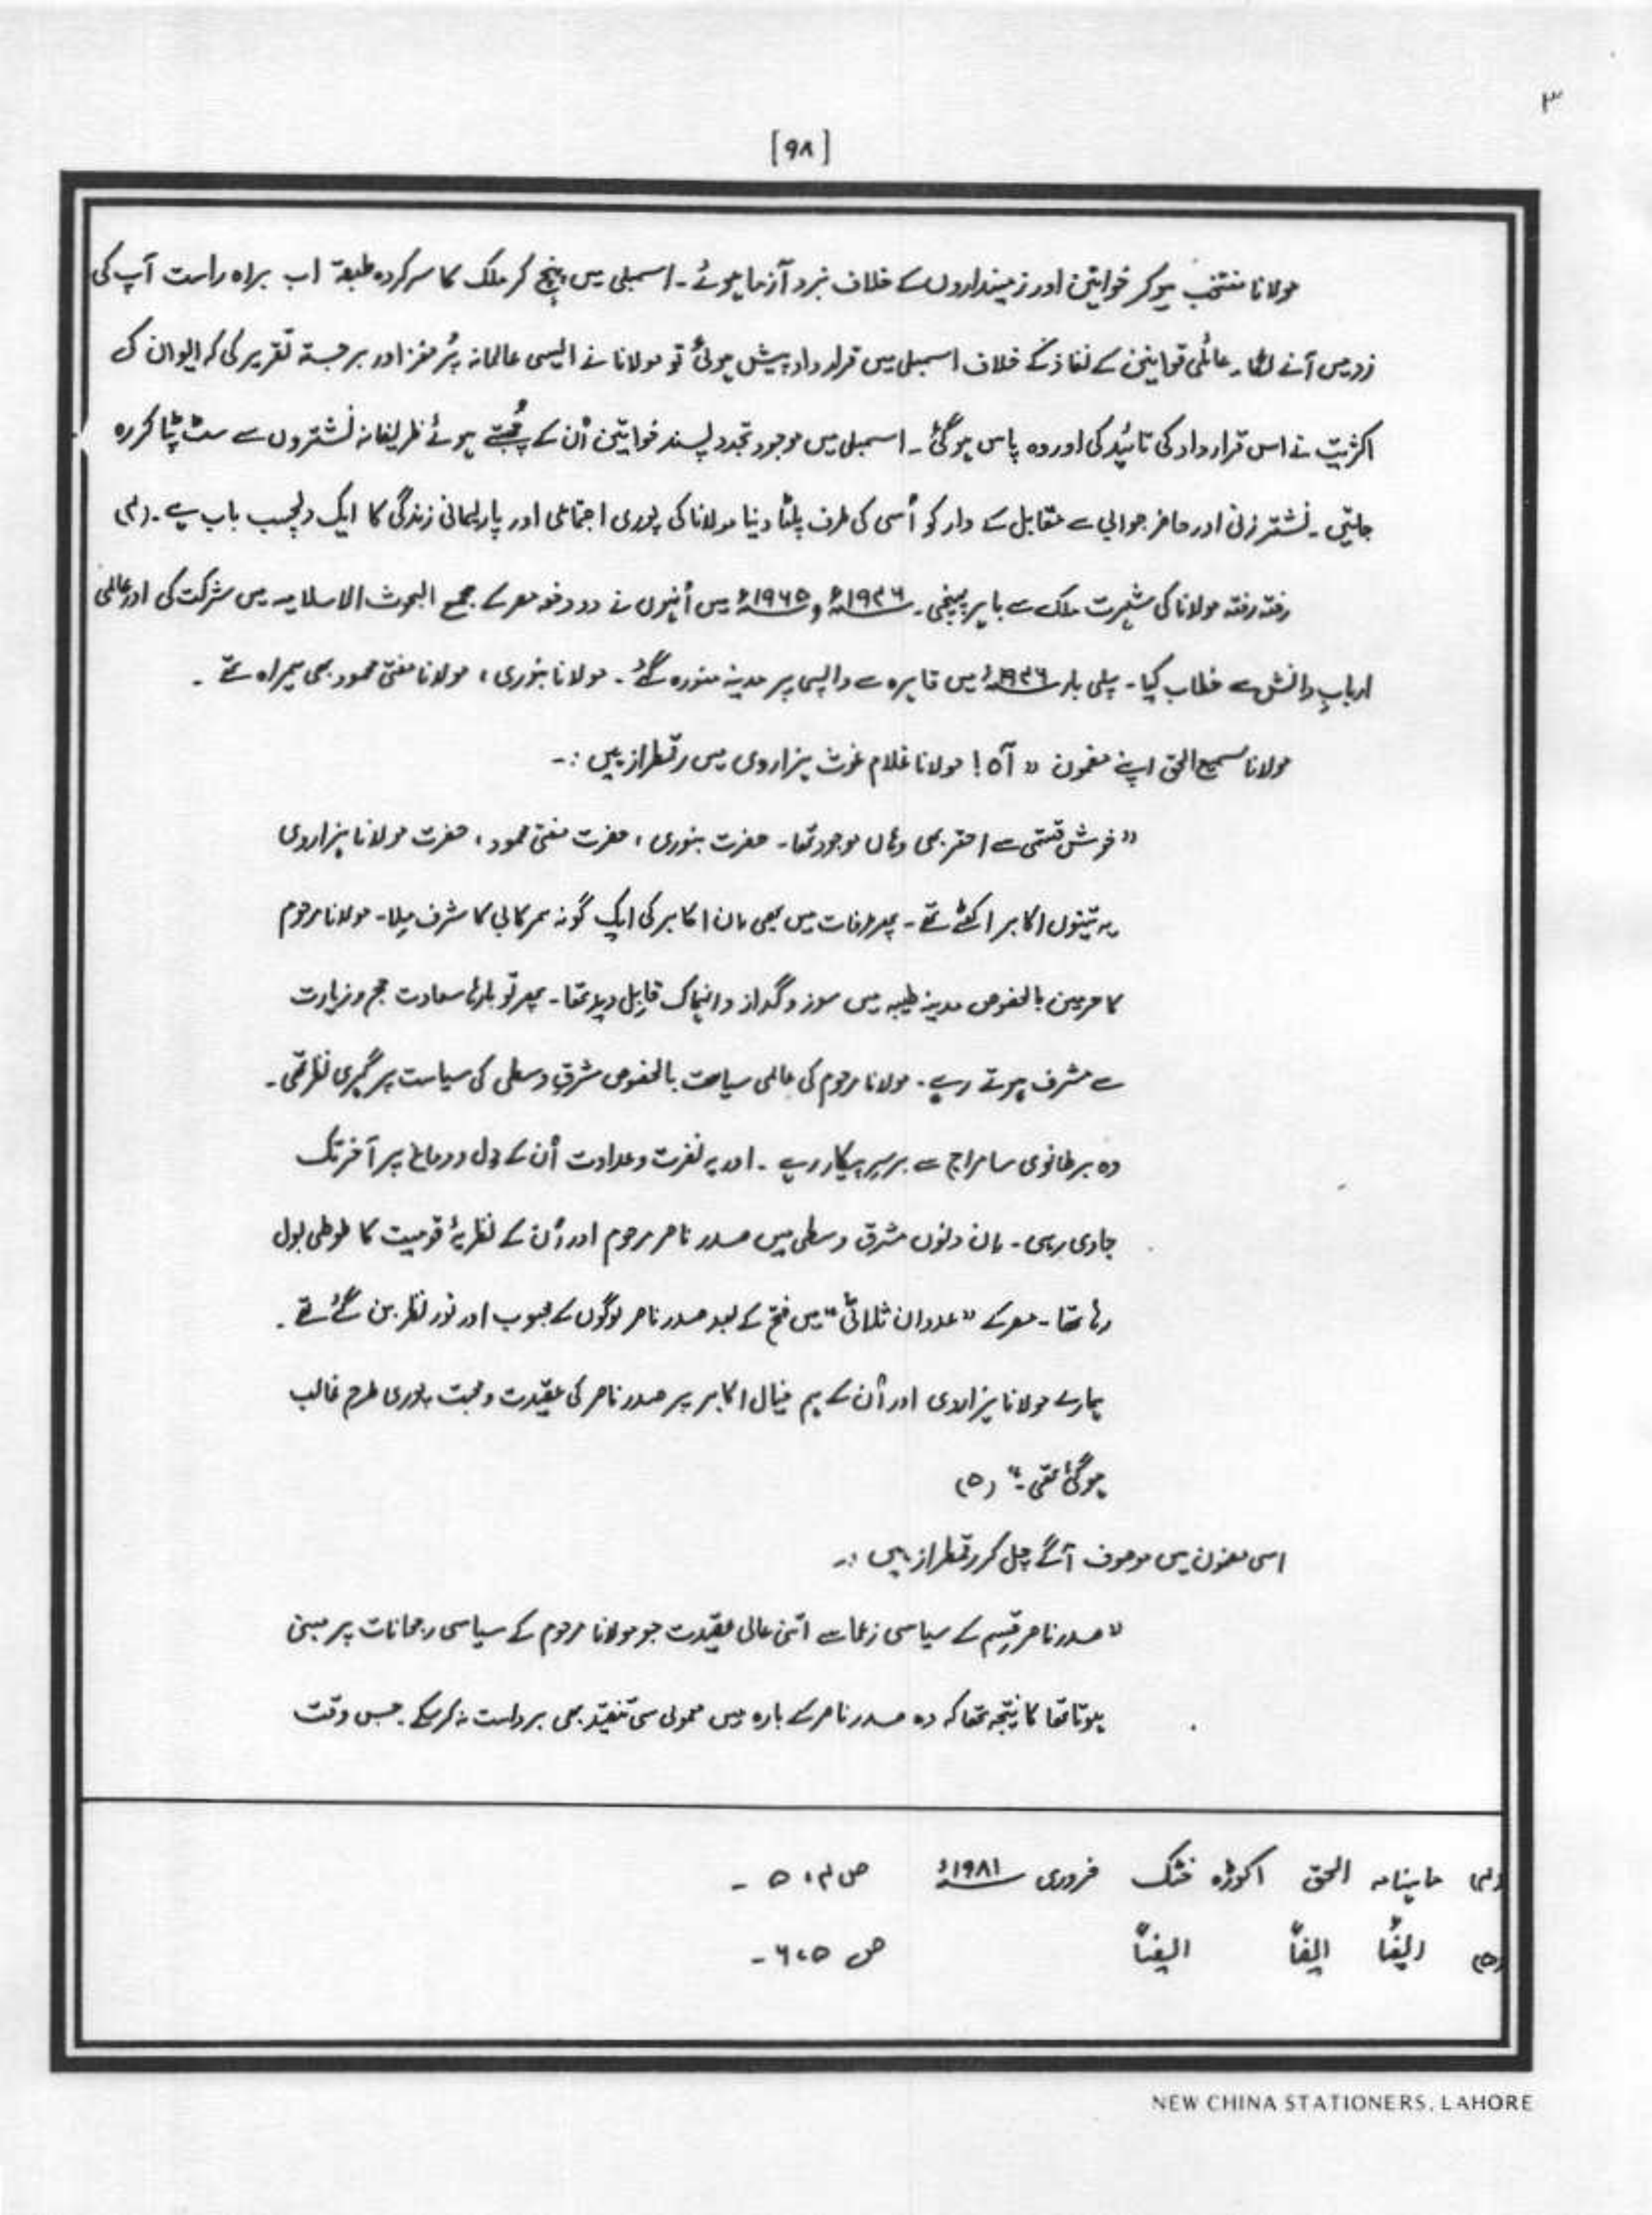 ۳
[۹۸]
مولانا منتخب ہو کر خواتین اور زمینداروں کے خلاف نبرد آزما ہوئے۔ اسمبلی میں پہنچ کر ملک کا سرکردہ طبقہ اب براہ راست آپ کی
زد میں آنے لگا۔ عائلی قوانین کے نفاذ کے خلاف اسمبلی میں قرارداد پیش ہوئی تو مولانا نے ایسی عالمانہ پُر مغز اور برجستہ تقریر کی کہ ایوان کی
اکثریت نے اس قرارداد کی تائید کی اور وہ پاس ہو گئی۔ اسمبلی میں موجود تجدد پسند خواتین اُن کے چُبھتے ہوئے ظریفانہ نشتروں سے سٹ پٹا کر رہ
جاتیں۔ نشتر زنی اور حاضر جوابی سے مقابل کے وار کو اُسی کی طرف پلٹا دینا مولانا کی پوری اجتماعی اور پارلیمانی زندگی کا ایک دلچسپ باب ہے۔ (۴)
رفتہ رفتہ مولانا کی شہرت ملک سے باہر پہنچی۔ ۱۹۴۶ء و ۱۹۶۵ء میں اُنہوں نے دو دفعہ مصر کے مجمع البحوث الاسلامیہ میں شرکت کی اور عالمی
اربابِ دانش سے خطاب کیا۔ پہلی بار ۱۹۴۶ء میں قاہرہ سے واپسی پر مدینہ منورہ گئے۔ مولانا بنوری، مولانا مفتی محمود بھی ہمراہ تھے۔
مولانا سمیع الحق اپنے مضمون " آہ! مولانا غلام غوث ہزاروی میں رقمطراز ہیں :-
"خوش قسمتی سے احقر بھی وہاں موجود تھا۔ حضرت بنوری، حضرت مفتی محمود، حضرت مولانا ہزاروی
یہ تینوں اکابر اکٹھے تھے۔ پھر عرفات میں بھی ان اکابر کی ایک گونہ ہمرکابی کا شرف ملا۔ مولانا مرحوم
کا حرمین بالخصوص مدینہ طیبہ میں سوز و گداز و انہماک قابل دید تھا۔ پھر تو بارہا سعادت حج و زیارت
سے مشرف ہوتے رہے۔ مولانا مرحوم کی عالمی سیاست بالخصوص مشرق وسطی کی سیاست پر گہری نظر تھی۔
وہ برطانوی سامراج سے برسرِ پیکار رہے۔ اور یہ نفرت و عداوت اُن کے دل و دماغ پر آخر تک
حاوی رہی۔ ان دنوں مشرق وسطی میں صدر ناصر مرحوم اور اُن کے نظریۂ قومیت کا طوطی بول
رہا تھا۔ مصر کے "عدوان ثلاثی" میں فتح کے بعد صدر ناصر لوگوں کے محبوب اور نور نظر بن گئے تھے۔
ہمارے مولانا ہزاروی اور اُن کے ہم خیال اکابر پر صدر ناصر کی عقیدت و محبت پوری طرح غالب
ہو گئی تھی۔" (۵)
اسی مضمون میں موصوف آگے چل کر رقمطراز ہیں :-
"صدر ناصر قسم کے سیاسی زعما سے اتنی عالی عقیدت جو مولانا مرحوم کے سیاسی رجحانات پر مبنی
ہوتا تھا کا نتیجہ تھا کہ وہ صدر ناصر کے بارہ میں معمولی سی تنقید بھی برداشت نہ کر سکے۔ جس وقت
(۴) ماہنامہ الحق اکوڑہ خٹک فروری ۱۹۸۱ء ص ۴، ۵ -
(۵) ایضاً ایضاً ایضاً ص ۵، ۶ -
NEW CHINA STATIONERS, LAHORE